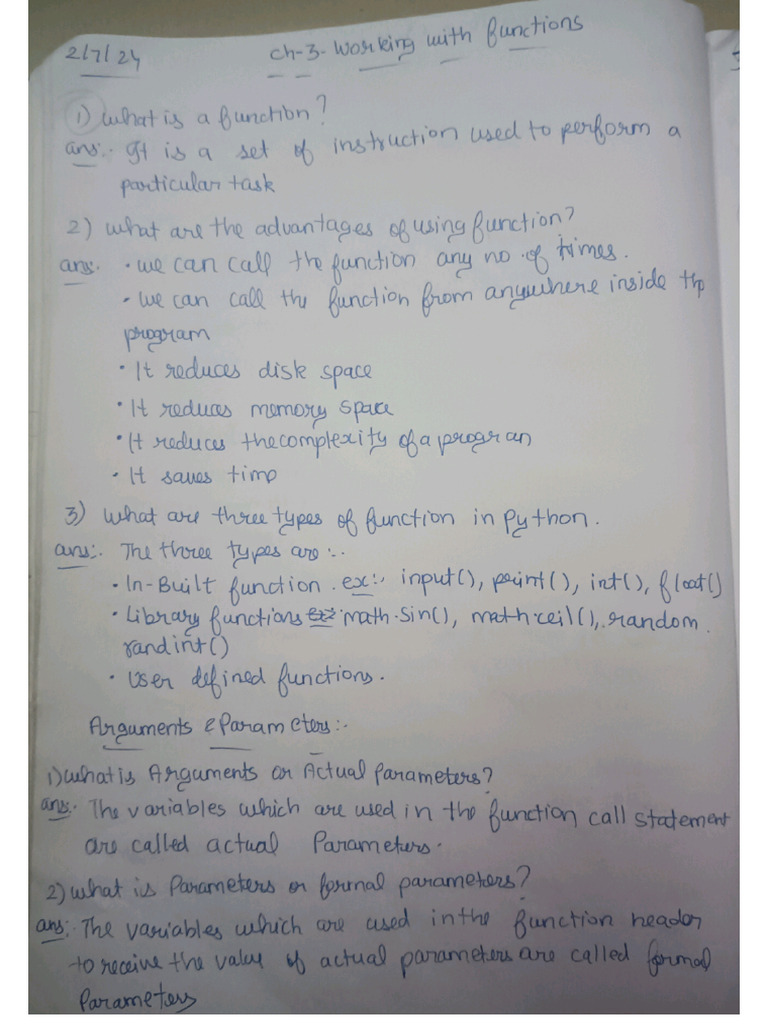 2/7/24 Ch-3- Working with functions
1) What is a function?
ans:- It is a set of instruction used to perform a
particular task
2) What are the advantages of using function?
ans:- • We can call the function any no. of times.
• We can call the function from anywhere inside the
program
• It reduces disk space
• It reduces memory space
• It reduces the complexity of a program
• It saves time
3) What are three types of function in Python.
ans:- The three types are:-
• In-Built function. ex:- input(), print(), int(), float()
• Library functions ex:- math.sin(), math.ceil(), random.
randint()
• User defined functions.
Arguments & Parameters:-
1) What is Arguments or Actual Parameters?
ans:- The variables which are used in the function call statement
are called actual Parameters.
2) What is Parameters or formal parameters?
ans:- The variables which are used in the function header
to receive the value of actual parameters are called formal
Parameters